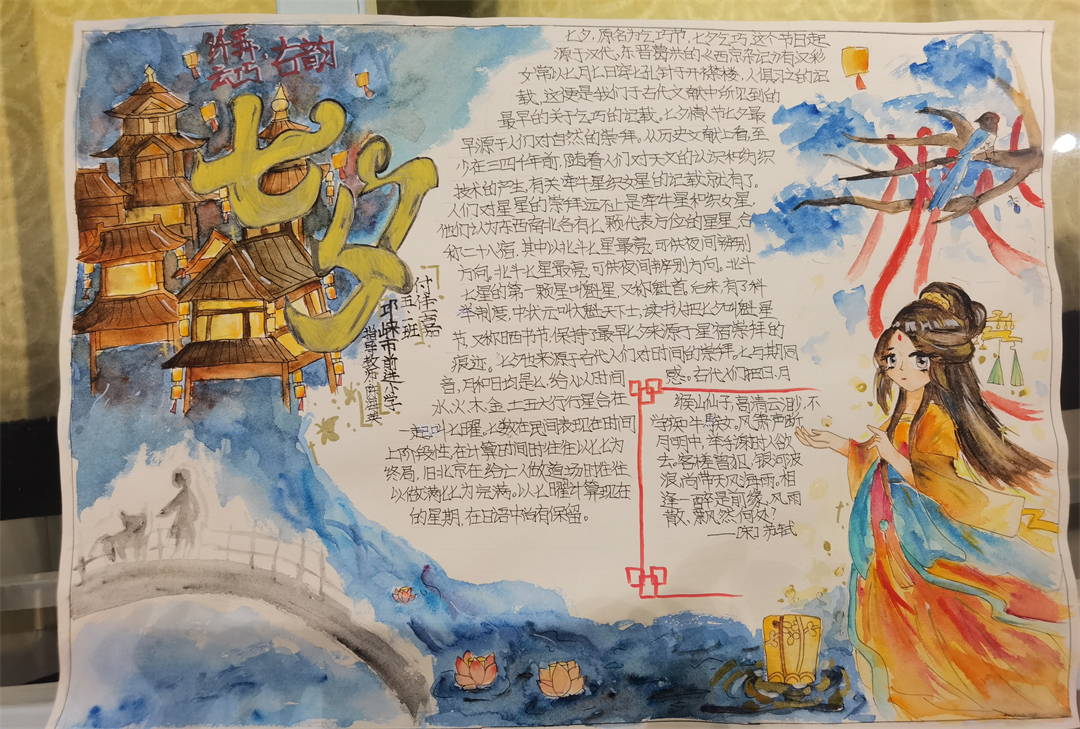 云巧·古韵
七夕
七夕,原名为乞巧节,七夕乞巧,这个节日起
源于汉代,东晋葛洪的《西京杂记》有"汉彩
女常以七月七日穿七孔针于开襟楼,人俱习之"的记
载,这便是我们于古代文献中所见到的
最早的关于乞巧的记载。七夕情人节七夕最
早源于人们对自然的崇拜。从历史文献上看,至
少在三四千年前,随着人们对天文的认识和纺织
技术的产生,有关牵牛星织女星的记载就有了。
人们对星星的崇拜远不止是牵牛星和织女星,
他们认为东西南北各有七颗代表方位的星星,合
称二十八宿,其中以北斗七星最亮,可供夜间辨别
方向。北斗七星最亮,可供夜间辨别方向。北斗
七星的第一颗星叫魁星,又称魁首,后来,有了科
举制度,中状元叫大魁天下士,读书人把七夕叫魁星
节,又称晒书节,保持了最早七夕来源于星宿崇拜的
痕迹。七夕也来源于古代人们对时间的崇拜。七与期同
音,月和日均是七,给人以时间感。古代人们把日、月
水、火、木、金、土五大行行星合在
一起叫七曜,七数在民间表现在时间
上阶段性,在计算时间时往往以七七为
终局,旧北京在给亡人做道场时往往
以做满七七为完满。以七曜计算现在
的星期,在日语中尚有保留。
付佳
五·一班
邛崃市前进小学
缑山仙子,高清云渺,不
学痴牛騃女。凤箫声断
月明中,举手谢时人欲
去。客槎曾犯,银河波
浪,尚带天风海雨。相
逢一醉是前缘,风雨
散、飘然何处?
——[宋]苏轼